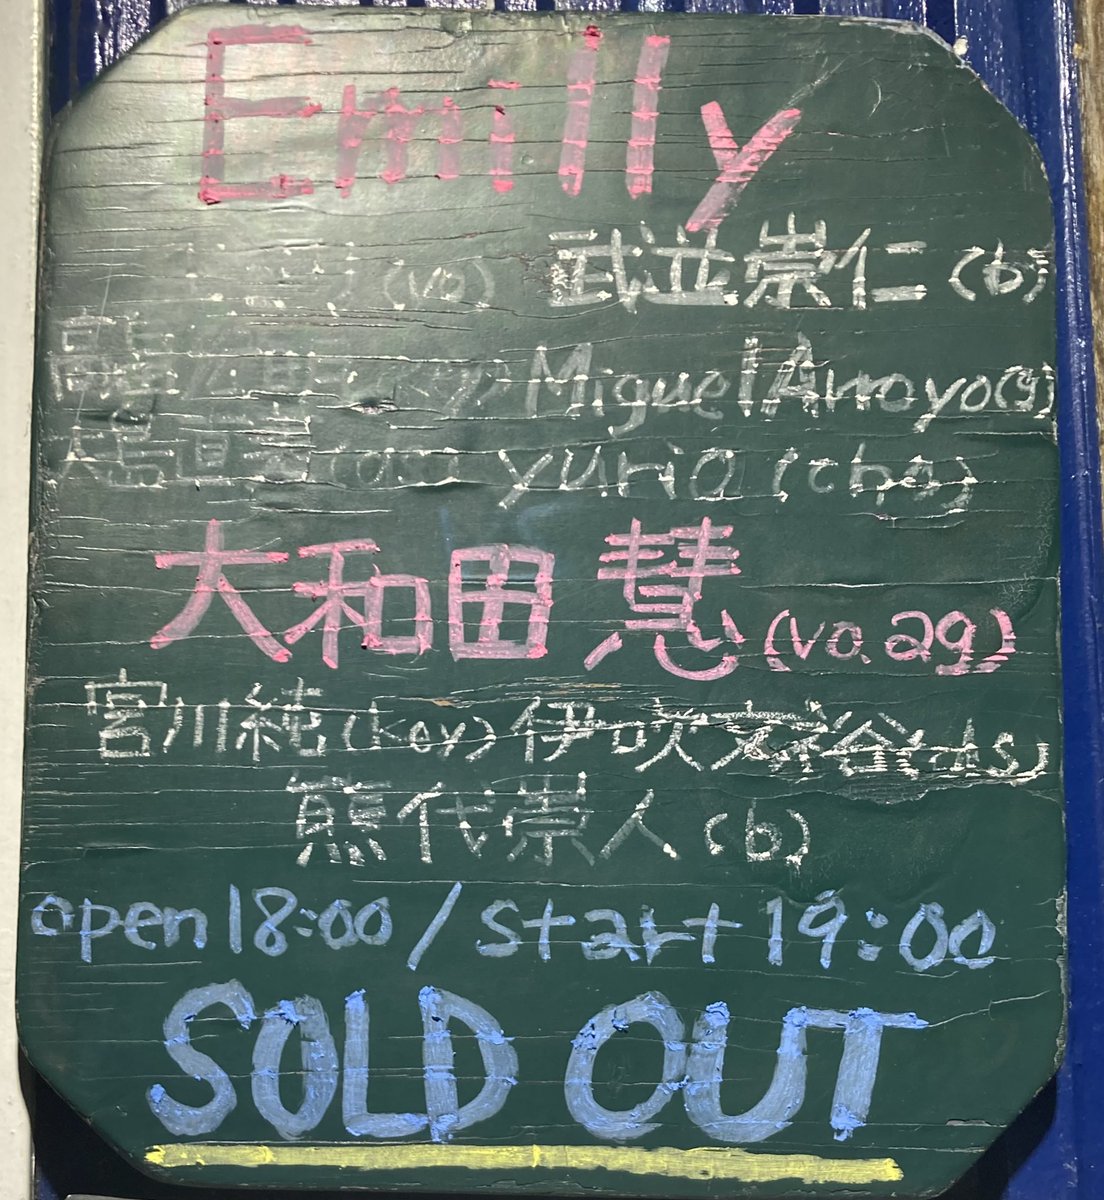 Emilly
(vo) 武並崇仁(b)
Miguel Arroyo(g)
yuria (cho)
大和田慧(vo.ag)
宮川純(key) 伊吹文裕(ds)
熊代崇人(b)
open 18:00 / start 19:00
SOLD OUT